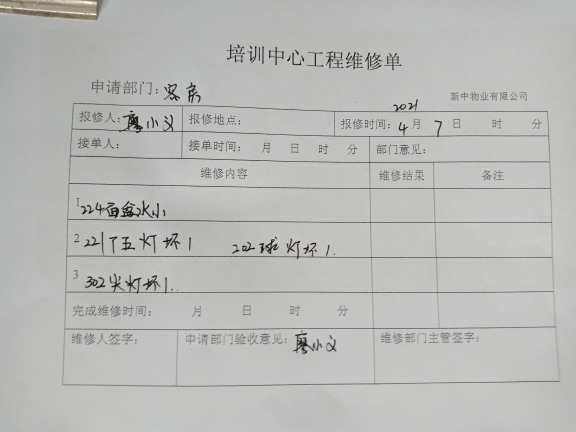 培训中心工程维修单
申请部门：客房 新中物业有限公司
2021
报修人：廖小义 报修地点： 报修时间：4月7日 时 分
接单人： 接单时间： 月 日 时 分 部门意见：
维修内容 维修结果 备注
1 224面盆水小
2 221下五灯坏1 202球灯坏1.
3 302尖灯坏1.
完成维修时间： 月 日 时 分
维修人签字： 申请部门验收意见：廖小义 维修部门主管签字：